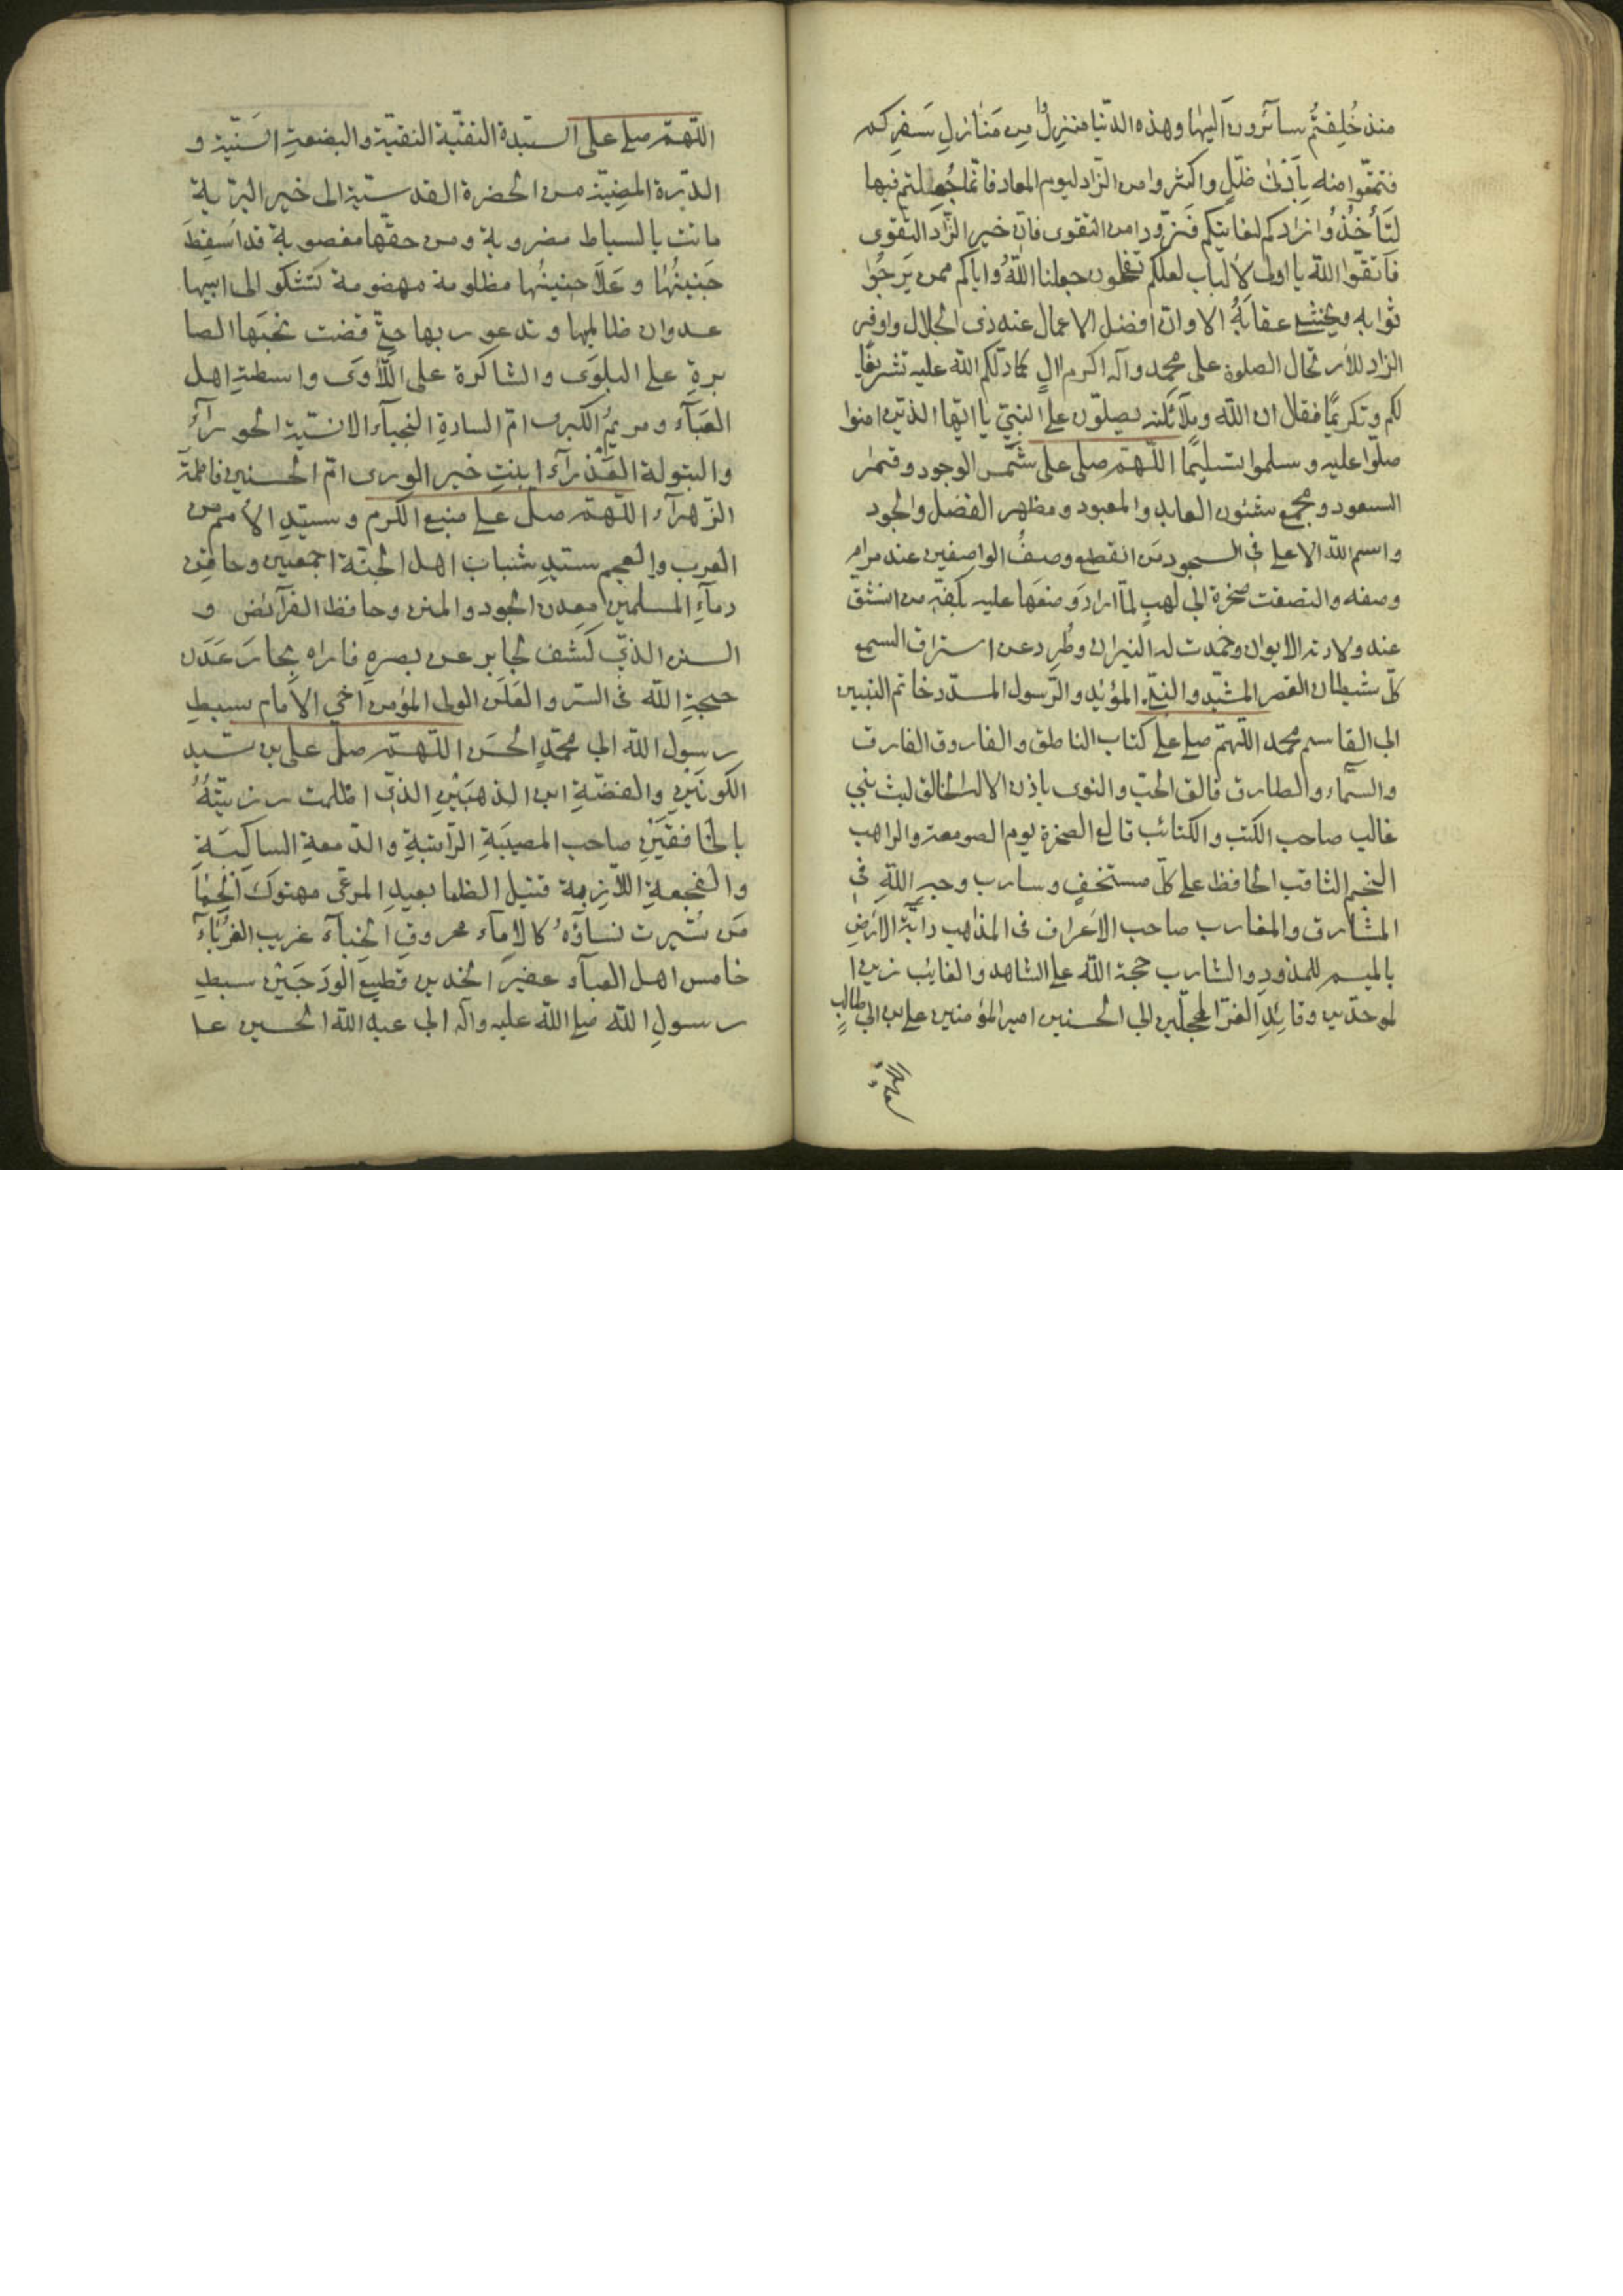 منذ خُلِقتُم سائرون اليها وهذه الدنيا منزل من مَنازلِ سَفرِكم
فتمتّعوا منه بِاَدنىٰ ظلّلٍ واكثروا من الزّاد ليوم المعاد فانّما جُعلتم فيها
لتَأخُذُوا زادكم لغايتكم فَتزوّدوا من التقوى فانّ خير الزّاد التقوى
فاتّقوا الله يا اولى الالباب لعلكم تفلحون جعلنا اللهُ واياكم ممن يَرجُوا
ثوابه ويخشىٰ عقابَهُ الا وانّ افضل الاعمال عند ذى الجلال واوفر
الزاد للارتحال الصلوة على محمد وآله اكرم الٍ كما دلّكم الله عليه تشريفًا
لكم وتكريمًا فقال ان الله وملآئكته يصلّون على النبيّ يا ايّها الذين امنوا
صلّوا عليه وسلموا تسليمًا اللّهمّ صلى على شَمس الوجود وقمر
السعود ومجمع شئون العابد والمعبود ومظهر الفضل والجود
واسم الله الاعلى فى السجود مَن انقطع وصفُ الواصفين عند مرام
وصفه والتصقت صخرة ابى لهبٍ لمّا اراد وَضعَها عليه بكفّه من انشقّ
عند ولادته الايوان وخمدت له النيران وطُرِد عن استراق السمع
كلّ شيطان القصر المشيّد والنبىّ المؤيّد والرّسول المسدّد خاتم النبيين
ابى القاسم محمد اللّهمّ صلى على كتاب الناطق والفاروق الفارق
والسّماء والطارق فالق الحبّ والنوى باذن الاله الخالق ليث بنى
غالب صاحب الكتب والكتائب قالع الصخرة يوم الصومعة والراهب
النجم الثاقب الحافظ على كلّ مستخفٍ وسارب وجهِ اللهِ فى
المشارق والمغارب صاحب الاَعراف فى المذاهب دابّة الارضِ
بالميسم للمذودِ والشارب حجة الله على الشاهد والغايب زين ا
لموحدّين وقائِدِ الغرّ المحجلّين ابى الحسنين امير المؤمنين على بن ابى طالبٍ
اللّهمّ صلى على السيّدة التقيّة النقيّة والبضعةِ السَنيّة و
الدرّة المضيّة من الحضرة القدسيّة الى خير البريّة
ماتت بالسياط مضروبة ومن حقّها مغصوبة قد اُسقِطَ
جَنينُها وعَلاَ حنينُها مظلومة مهضومة تشكو الى ابيها
عدوان ظالميها وتدعو ربها حتّى قضت نحبَها الصا
برةِ على البلوَى والشاكرة على اللّأوَى واسطةِ اهل
العَبآء ومريمُ الكبرى امّ السادةِ النجبآء الانسيّة الحورآء
والبتولة العَذرآء ابنتِ خير الورى امّ الحسنين فاطمة
الزّهرآء اللّهمّ صلّ على منبع الكرم وسيّدِ الاُمم من
العرب والعجم سيّدِ شباب اهل الجنّة اجمعين وحاقن
دمآءِ المسلمين معدن الجود والمنن وحافظ الفرآئض و
السنن الذّى كَشف لجابر عن بصرهِ فاراه بحارَ عَدَن
حجةِ الله فى السّر والعَلَن الولى المؤمن اخى الامام سبطِ
رسول الله ابى محمّدٍ الحَسَن اللّهمّ صلّ على بن سيّد
الكونَينِ والفضّةِ ابن الذهبَيْنِ الذّى اظلمت رزيّتُهُ
بالخافقَيْنِ صاحب المصيبَةِ الرّاتبةِ والدّمعةِ الساكِبَةِ
والفجعةِ اللّازمة قتيل الظما بعيدِ المرمى مهتوكَ الحِما
مَن سُيّرت نساؤُه كالامآء محروقِ الخبآء غريب الغُرَبآءِ
خامس اهل العبآء عفيرَ الخدين قطيعَ الوَدَجَيْن سبطِ
رسولِ الله صلى الله عليه وآله ابى عبد الله الحسين عـا